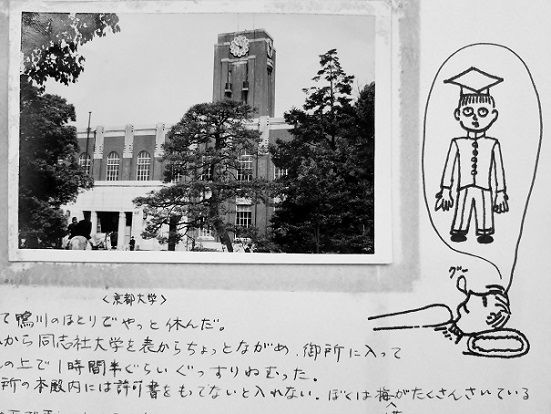 <京都大学>
グー
て鴨川のほとりでやっと休んだ。
から同志社大学を表からちょっとながめ、御所に入って
の上で1時間半ぐらいぐっすりねむった。
所の本殿内には許可書をもてないと入れない。ぼくは梅がたくさんさいている